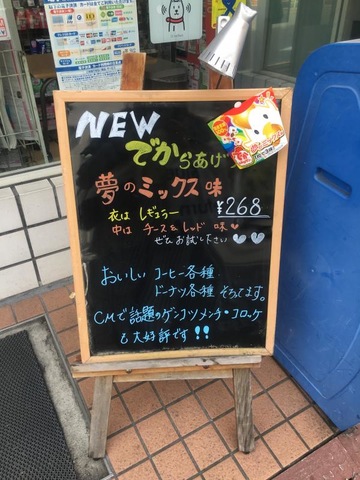 NEW
でからあげ
夢のミックス味
衣は レギュラー
¥268
中は チーズ & レッド 味
ぜひ お試し下さい
おいしい コーヒー各種
ドーナツ各種 そろってます。
CMで話題のゲンコツメンチ・コロッケ
も大好評です!!